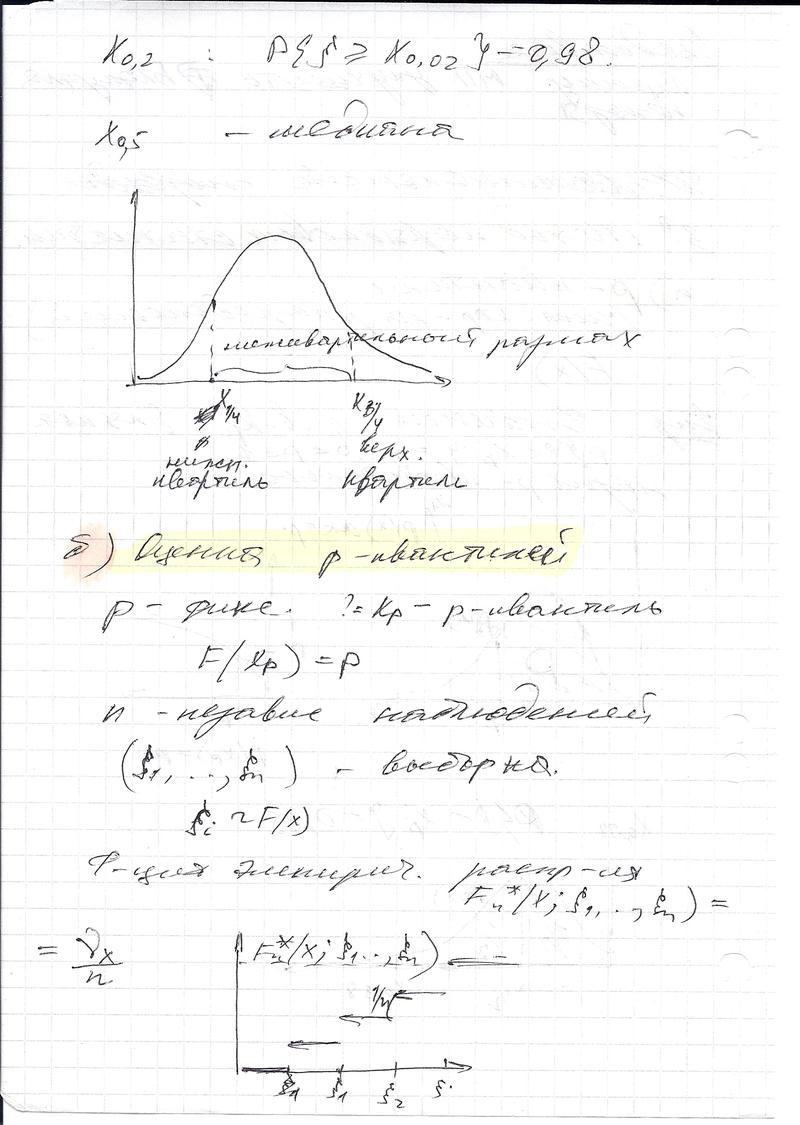 x0,2 : P{ξ ≥ x0,02} = 0,98.
x0,5 – медиана
межквартильный размах
x1/4 x3/4
нижн. верх.
квартиль квартиль
б) Оценка p-квантилей
p – фикс. ?= xp – p-квантиль
F(xp) = p
n – независ наблюдений
(ξ1, ..., ξn) – выборка.
ξi ~ F(x)
Ф-ция эмпирич. распр-ия
Fn*(x; ξ1, .., ξn) =
= νx/n
Fn*(x; ξ1, .., ξn)
1/n
ξ1 ξ2